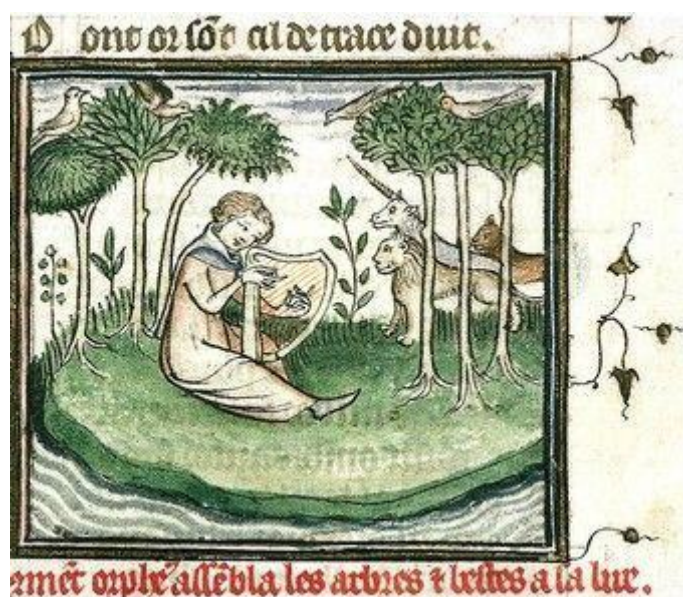 D ont or sōt cil de trace duit.
orphe⁹ assēbla les arbres ⁊ bestes a la lire.